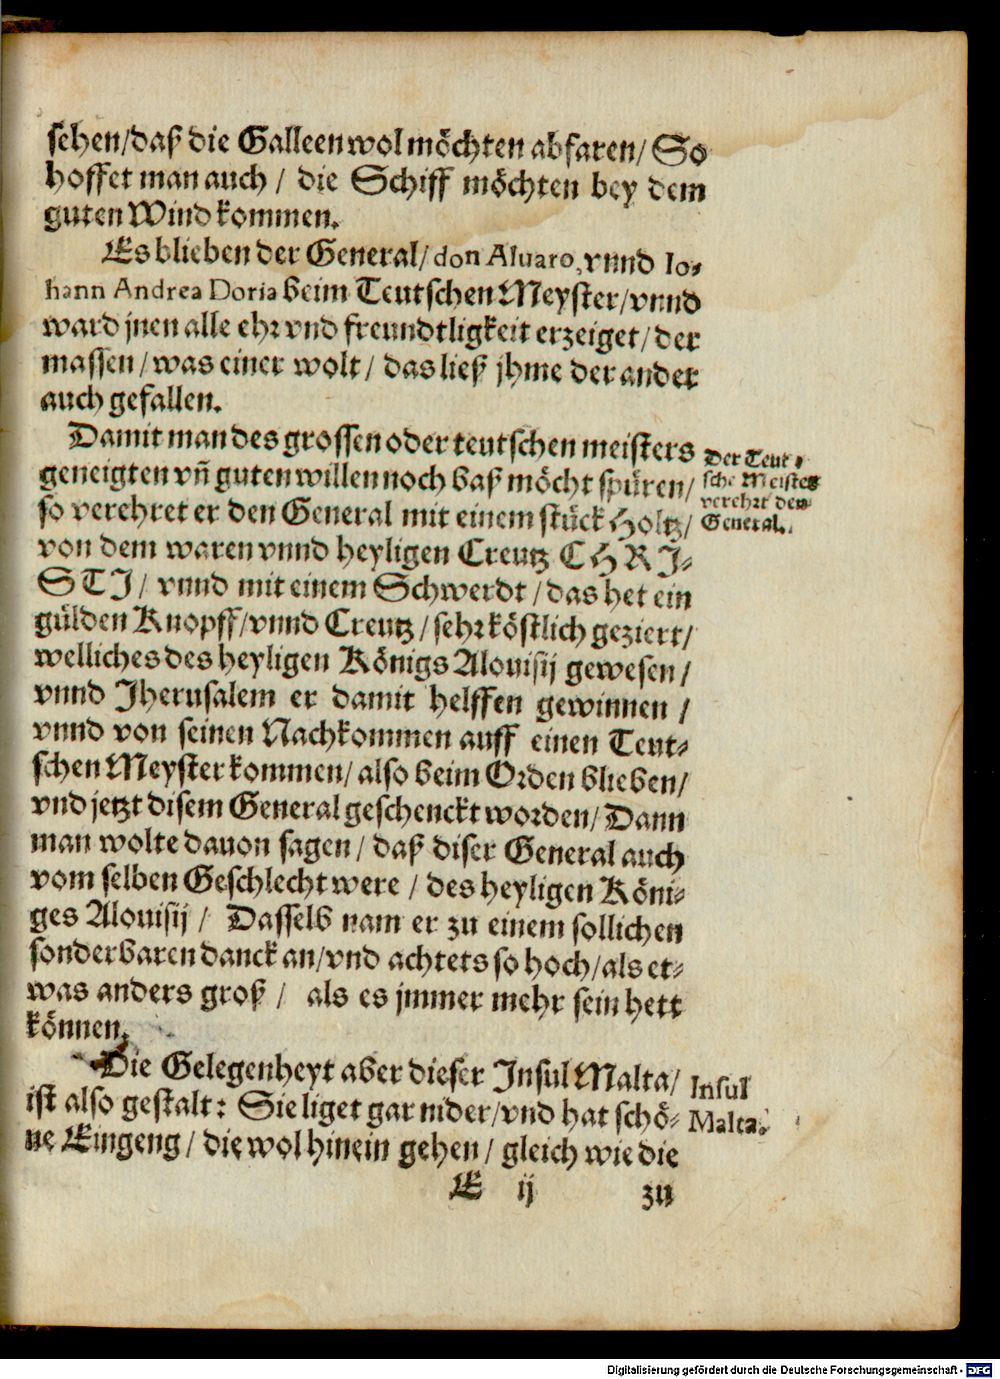 sehen/daß die Galleen wol möchten abfaren/ So
hoffet man auch / die Schiff möchten bey dem
guten Wind kommen.
Es blieben der General/ don Aluaro, vnnd Io-
hann Andrea Doria beim Teutschen Meyster/vnnd
ward jnen alle ehr vnd freundtligkeit erzeiget/ der
massen / was einer wolt / das ließ jhme der ander
auch gefallen.
Damit man des grossen oder teutschen meisters
geneigten vñ guten willen noch baß möcht spüren/
so verehret er den General mit einem stück Holtz/
von dem waren vnnd heyligen Creutz CHRI-
STI / vnnd mit einem Schwerdt / das het ein
gülden Knopff/vnnd Creutz / sehr köstlich geziert/
welliches des heyligen Königs Alouisij gewesen /
vnnd Jherusalem er damit helffen gewinnen /
vnnd von seinen Nachkommen auff einen Teut-
schen Meyster kommen/ also beim Orden blieben/
vnd jetzt disem General geschenckt worden/ Dann
man wolte dauon sagen / daß diser General auch
vom selben Geschlecht were / des heyligen Köni-
ges Alouisij / Dasselb nam er zu einem sollichen
sonderbaren danck an/vnd achtets so hoch/als et-
was anders groß / als es jmmer mehr sein hett
können.
Die Gelegenheyt aber dieser Insul Malta/
ist also gestalt: Sie liget gar nider/vnd hat schö-
ne Eingeng / die wol hinein gehen / gleich wie die
E ij zu
Der Teut-
sche Meister
verehrt den
General.
Insul
Malta.
Digitalisierung gefördert durch die Deutsche Forschungsgemeinschaft - DFG